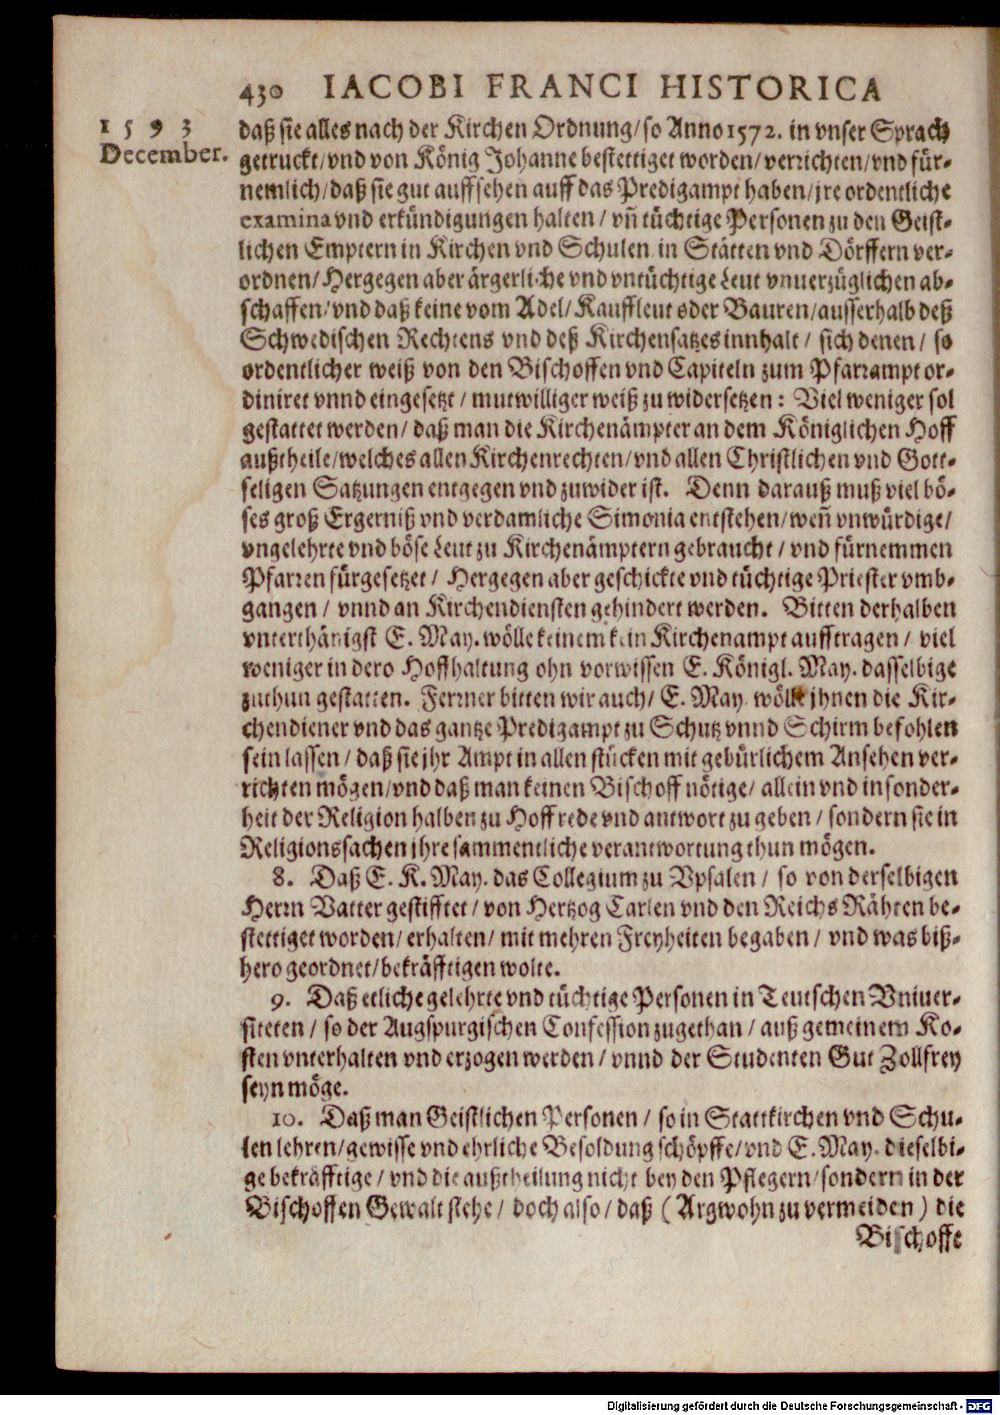 430 IACOBI FRANCI HISTORICA
1593
December.
daß sie alles nach der Kirchen Ordnung/so Anno 1572. in vnser Sprach
getruckt/vnd von König Johanne bestettiget worden/verrichten/vnd für-
nemlich/daß sie gut auffsehen auff das Predigampt haben/jre ordentliche
examina vnd erkündigungen halten/vñ tüchtige Personen zu den Geist-
lichen Emptern in Kirchen vnd Schulen in Stätten vnd Dörffern ver-
ordnen/Hergegen aber ärgerliche vnd vntüchtige Leut vnuerzüglichen ab-
schaffen/vnd daß keine vom Adel/Kauffleut oder Bauren/ausserhalb deß
Schwedischen Rechtens vnd deß Kirchensatzes innhalt/sich denen/so
ordentlicher weiß von den Bischoffen vnd Capiteln zum Pfarrampt or-
diniret vnnd eingesetzt/mutwilliger weiß zu widersetzen: Viel weniger sol
gestattet werden/daß man die Kirchenämpter an dem Königlichen Hoff
außtheile/welches allen Kirchenrechten/vnd allen Christlichen vnd Gott-
seligen Satzungen entgegen vnd zuwider ist. Denn darauß muß viel bö-
ses groß Ergerniß vnd verdamliche Simonia entstehen/weñ vnwürdige/
vngelehrte vnd böse Leut zu Kirchenämptern gebraucht/vnd fürnemmen
Pfarren fürgesetzet/Hergegen aber geschickte vnd tüchtige Priester vmb-
gangen/vnnd an Kirchendiensten gehindert werden. Bitten derhalben
vnterthänigst E. May. wölle keinem kein Kirchenampt aufftragen/viel
weniger in dero Hoffhaltung ohn vorwissen E. Königl. May. dasselbige
zuthun gestatten. Ferrner bitten wir auch/E. May. wölle jhnen die Kir-
chendiener vnd das gantze Predigampt zu Schutz vnnd Schirm befohlen
sein lassen/daß sie jhr Ampt in allen stücken mit gebürlichem Ansehen ver-
richten mögen/vnd daß man keinen Bischoff nötige/allein vnd insonder-
heit der Religion halben zu Hoff rede vnd antwort zu geben/sondern sie in
Religionssachen jhre sammentliche verantwortung thun mögen.
8. Daß E. K. May. das Collegium zu Vpsalen/so von derselbigen
Herrn Vatter gestifftet/von Hertzog Carlen vnd den Reichs Rähten be-
stettiget worden/erhalten/mit mehren Freyheiten begaben/vnd was biß-
hero geordnet/bekräfftigen wolte.
9. Daß etliche gelehrte vnd tüchtige Personen in Teutschen Vniuer-
siteten/so der Augspurgischen Confession zugethan/auß gemeinem Ko-
sten vnterhalten vnd erzogen werden/vnnd der Studenten Gut Zollfrey
seyn möge.
10. Daß man Geistlichen Personen/so in Stattkirchen vnd Schu-
len lehren/gewisse vnd ehrliche Besoldung schöpffe/vnd E. May. dieselbi-
ge bekräfftige/vnd die außtheilung nicht bey den Pflegern/sondern in der
Bischoffen Gewalt stehe/doch also/daß (Argwohn zu vermeiden) die
Bischoffe
Digitalisierung gefördert durch die Deutsche Forschungsgemeinschaft - DFG